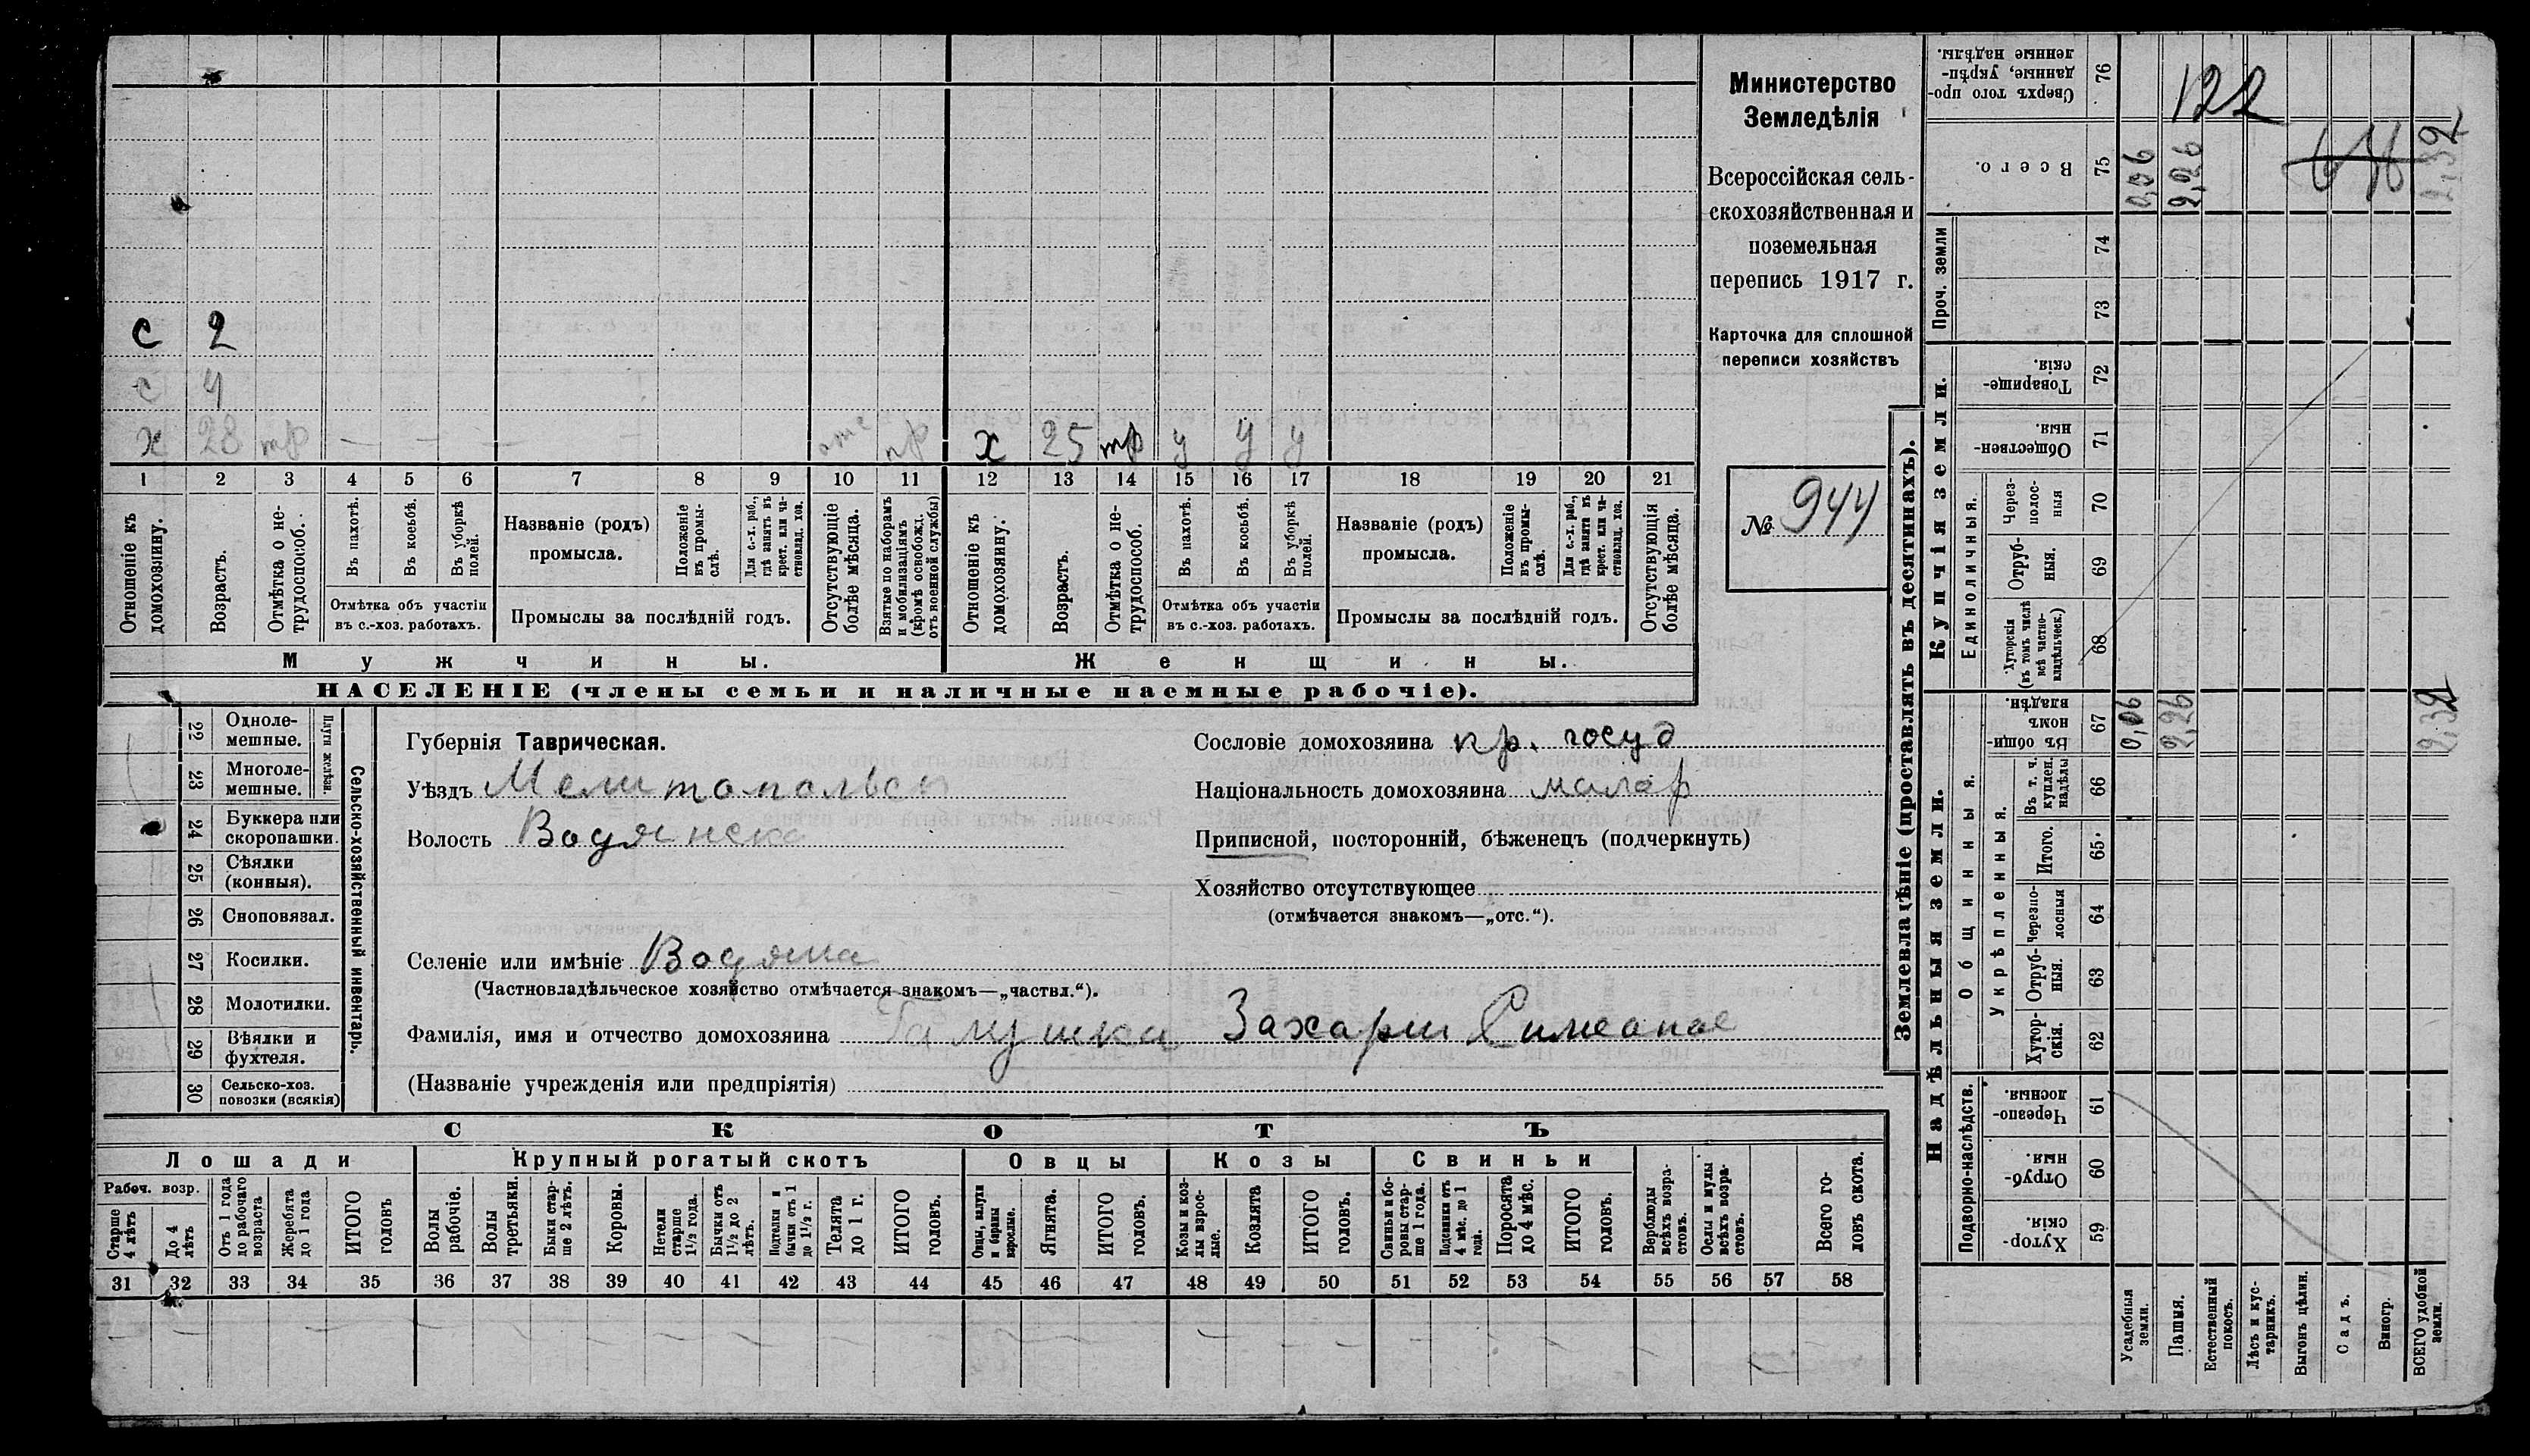 с 2
с 4
х 28 тр — — — — отс пр х 25 тр у у у
1 2 3 4 5 6 7 8 9 10 11 12 13 14 15 16 17 18 19 20 21
Отношеніе къ домохозяину.
Возрастъ.
Отмѣтка о не-трудоспособ.
Въ пахотѣ.
Въ косьбѣ.
Въ уборкѣ полей.
Отмѣтка объ участіи
въ с.-хоз. работахъ.
Названіе (родъ)
промысла.
Положеніе въ промы-слѣ.
Для с.-х. раб., гдѣ занятъ въ крест. или ча-стновлад. хоз.
Промыслы за послѣдній годъ.
Отсутствующіе болѣе мѣсяца.
Взятые по наборамъ и мобилизаціямъ (кромѣ освобожд. отъ военной службы)
Отношеніе къ домохозяину.
Возрастъ.
Отмѣтка о не-трудоспособ.
Въ пахотѣ.
Въ косьбѣ.
Въ уборкѣ полей.
Отмѣтка объ участіи
въ с.-хоз. работахъ.
Названіе (родъ)
промысла.
Положеніе въ промы-слѣ.
Для с.-х. раб., гдѣ занята въ крест. или ча-стновлад. хоз.
Промыслы за послѣдній годъ.
Отсутствующія болѣе мѣсяца.
Мужчины.
Женщины.
НАСЕЛЕНІЕ (члены семьи и наличные наемные рабочіе).
Министерство
Земледѣлія
Всероссійская сель-
скохозяйственная и
поземельная
перепись 1917 г.
Карточка для сплошной
переписи хозяйствъ
№ 944
Сельско-хозяйственный инвентарь.
Плуги желѣзн.
22 Одноле-мешные.
23 Многоле-мешные.
24 Буккера или скоропашки.
25 Сѣялки (конныя).
26 Сноповязал.
27 Косилки.
28 Молотилки.
29 Вѣялки и фухтеля.
30 Сельско-хоз. повозки (всякія)
Губернія Таврическая.
Уѣздъ Мелитопольск
Волость Водянска
Сословіе домохозяина кр. госуд
Національность домохозяина малор
Приписной, посторонній, бѣженецъ (подчеркнуть)
Хозяйство отсутствующее
(отмѣчается знакомъ—„отс.“).
Селеніе или имѣніе Водяна
(Частновладѣльческое хозяйство отмѣчается знакомъ—„частвл.“).
Фамилія, имя и отчество домохозяина Галушка Захарій Симеонов
(Названіе учрежденія или предпріятія)
СКОТЪ
Лошади Крупный рогатый скотъ Овцы Козы Свиньи
Рабоч. возр.
Старше 4 лѣтъ
До 4 лѣтъ
Отъ 1 года до рабочаго возраста
Жеребята до 1 года
ИТОГО головъ
Волы рабочіе.
Волы третьяки.
Быки стар-ше 2 лѣтъ.
Коровы.
Нетели старше 1½ года.
Бычки отъ 1½ до 2 лѣтъ.
Подтелки и бычки отъ 1 до 1½ г.
Телята до 1 г.
ИТОГО головъ.
Овцы, валухи и бараны взрослые.
Ягнята.
ИТОГО головъ.
Козы и коз-лы взрос-лые.
Козлята
ИТОГО головъ.
Свиньи и бо-ровы стар-ше 1 года.
Подсвинки отъ 4 мѣс. до 1 года.
Поросята до 4 мѣс.
ИТОГО головъ.
Верблюды всѣхъ возра-стовъ.
Ослы и мулы всѣхъ возра-стовъ.
Всего го-ловъ скота.
31 32 33 34 35 36 37 38 39 40 41 42 43 44 45 46 47 48 49 50 51 52 53 54 55 56 57 58
Землевладѣніе (проставлять въ десятинахъ).
Купчія земли.
Надѣльныя земли.
Сверхъ того про-данные, укрѣп-ленные надѣлы. 76
122
Всего. 75 0,06 2,26 2,32
Проч. земли
74
73
Товарище-скія. 72
Обществен-ныя. 71
Единоличныя.
Через-полос-ныя 70
Отруб-ныя. 69
Хуторскія (въ томъ числѣ всѣ частно-владѣльческ.) 68
Общинныя.
Въ общин-номъ владѣн. 67 0,06 2,26 2,32
Укрѣпленныя.
Въ т. ч. куплен. надѣлы 66
Итого. 65.
Черезпо-лосныя 64
Отруб-ныя. 63
Хутор-скія. 62
Подворно-наслѣдств.
Черезпо-лосныя. 61
Отруб-ныя. 60
Хутор-скія. 59
Усадебныя земли.
Пашня.
Естественный покосъ.
Лѣсъ и кус-тарникъ.
Выгонъ цѣлин.
Садъ.
Виногр.
ВСЕГО удобной земли.